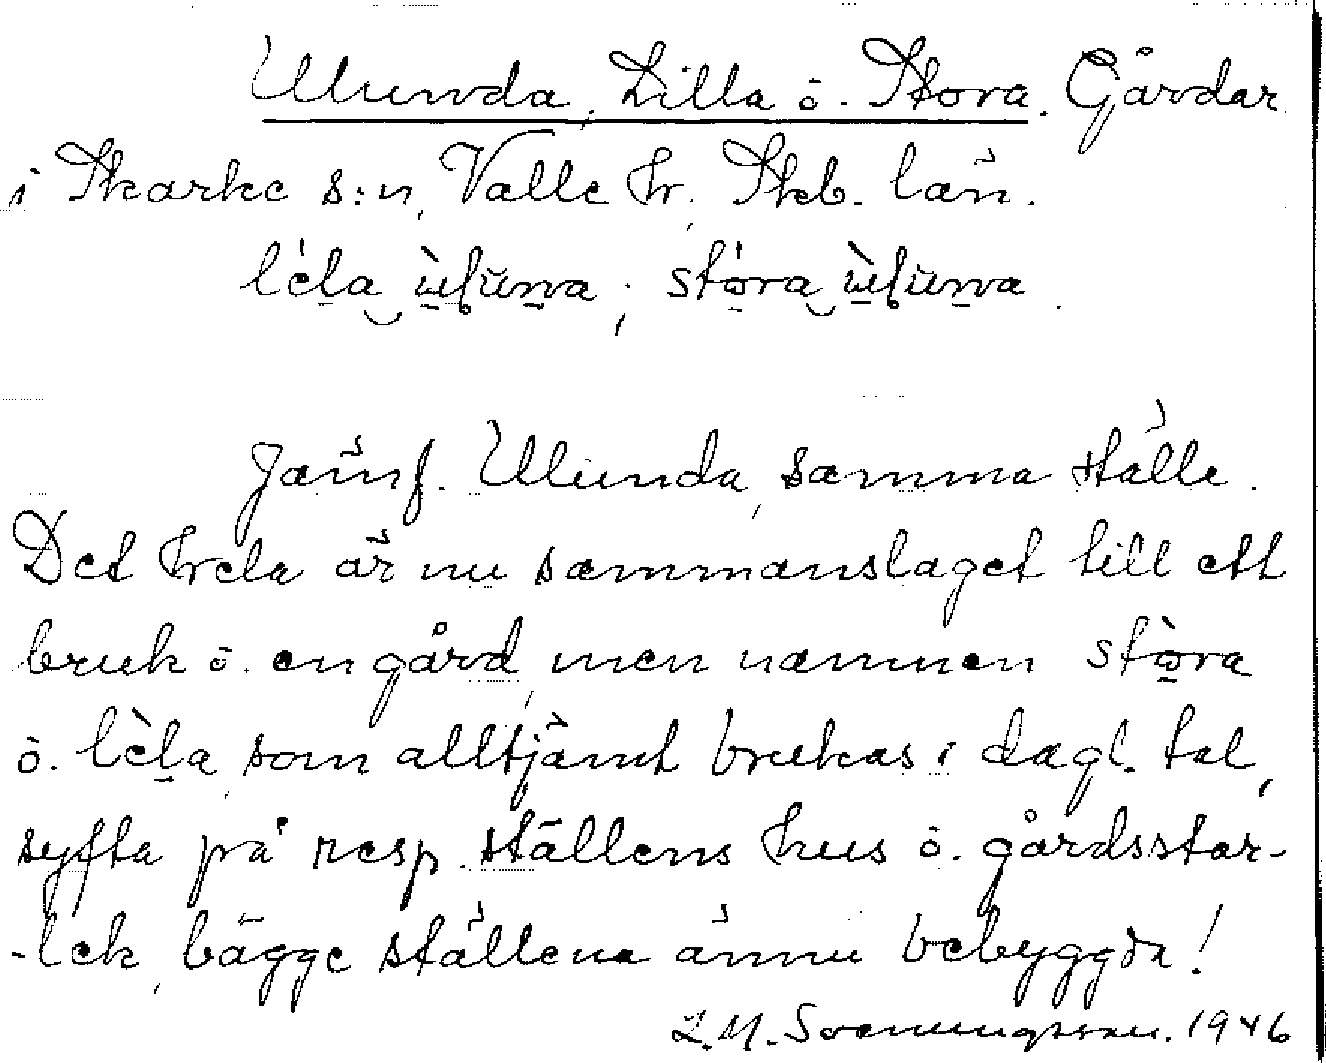 Ulunda, Lilla o. Stora. Gårdar
i Skarke s:n, Valle hr, Skb. län.
Jämf. Ulunda, samma ställe.
Det hela är nu sammanslaget till ett
bruk o. en gård, men namnen stòra
o. lèla, som alltjämt brukas i dagl. tal,
syfta på resp. ställens hus o. gårdsstor-
-lek, bägge ställena ännu bebyggda!
1946